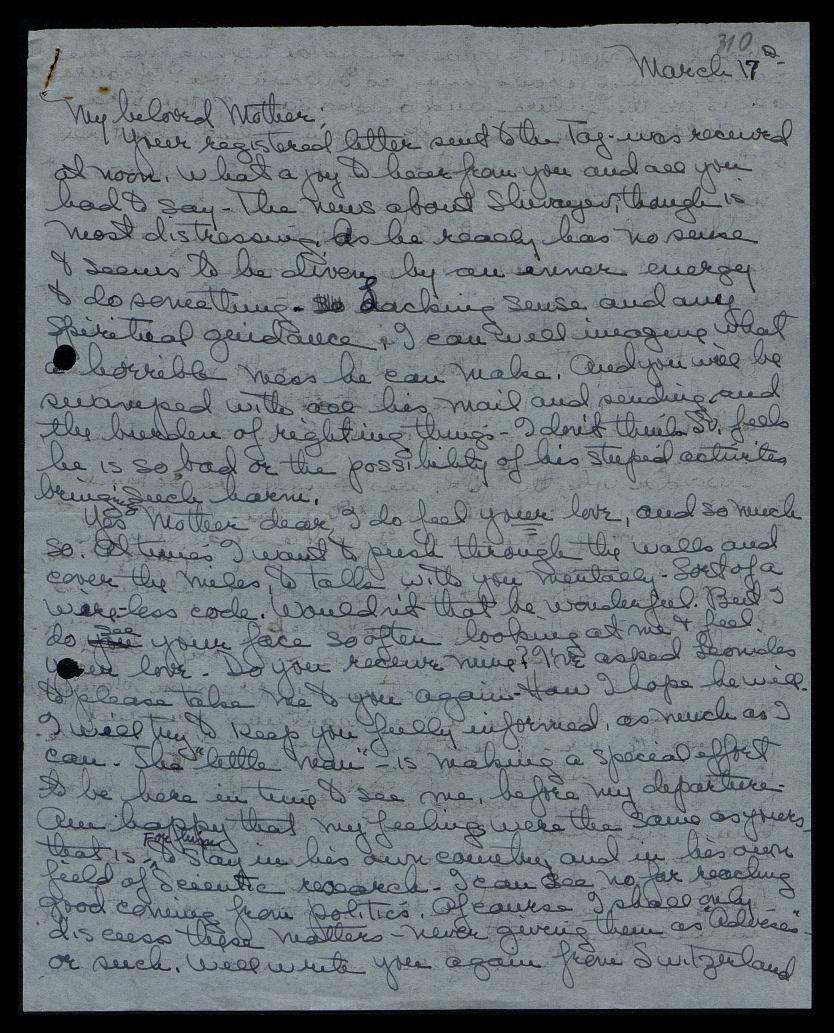 310
March 17
My beloved Mother;
Your registered letter sent to the Taj - was received
at noon. What a joy to hear from you and all you
had to say - The news about Shivayev, though is
most distressing, As he really has no sense
& seems to be driven, by an inner energy
to do something - Lacking sense and any
spiritual guidance, I can well imagine what
a horrible mess he can make. And you will be
swamped with all his mail and sending, and
the burden of righting things - I don't think St. feels
he is so bad or the possibility of his stupid activites
bringing such harm.
Yes Mother dear, I do feel your love, and so much
so. At times I want to push through the walls and
cover the miles, to talk with you mentally - Sort of a
wire-less code. Wouldn't that be wonderful. But I
do see your face so often looking at me & feel
your love - Do you receive mine? I've asked Leonides
to please take me to you again - How I hope he will.
I will try to keep you fully informed, as much as I
can - The "little man" - is making a special effort
to be here in time to see me, before my departure -
Am happy that my feelings were the same as yours -
that is, For him to stay in his own country and in his own
field of Scientic research - I can see no far reaching
good coming from politics. Of course I shall only
discuss these matters - never giving them as "Advises" -
or such. Will write you again from Switzerland